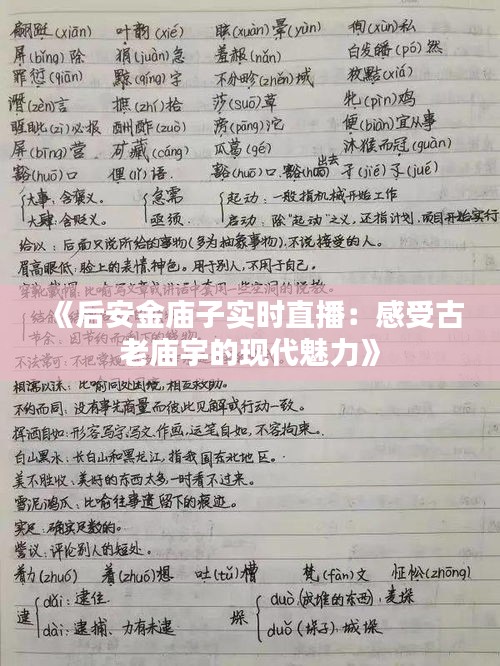 翩跹(xiān) 叶韵(xié) 眩(xuàn)晕(yùn) 徇(xùn)私
屏(bǐng)除 狷(juàn)急 羞赧(nǎn) 白发皤(pó)然
罪愆(qiān) 黥(qíng)字 不分畛(zhěn)域 狡黠(xiá)
谮(zèn)言 摭(zhí)拾 莎(suō)草 牝(pìn)鸡
睚眦(zì)必报 酬酢(zuò) 滂(pāng)沱 便(biàn)宜从事
屏(bīng)营 矿藏(cáng) 瓜葛(gé) 沐猴而冠(guàn)
豁(huō)口 俚(lǐ)语 豁(huō)口、豁(huō)出去 孑(jié)孓(jué)
大事:含褒义。 急需 起动:一般指机械开始工作
大肆:含贬义。 亟须 启动:除“起动”之义,还指计划、项目开始实行
给以:后面只说所给的事物(多为抽象事物),不说接受的人。
眉高眼低:脸上的表情神色。用于别人,不用于自己。
《后安金庙子实时直播:感受古
老庙宇的现代魅力》
相濡以沫:比喻同处困境,相互救助。
不约而同:没有事先商量而彼此见解或行动一致。
挥洒自如:形容写字、写文、作画,运笔自如,不容拘束。
白山黑水:长白山和黑龙江,指我国东北地区。
美不胜收:美好的东西太多,一时看不过来。
雪泥鸿爪:比喻往事遗留下的痕迹。
实足:确实足数的。
訾议:评论别人的短处。
着力(zhuó) 着(zhuó)想 吐(tǔ)槽 梵(fàn)文 怔忪(zhōng)
逮 dǎi:逮住 垛 duò(成堆的东西):麦垛
dài:逮捕、力有未逮 duǒ(垛子):城垛